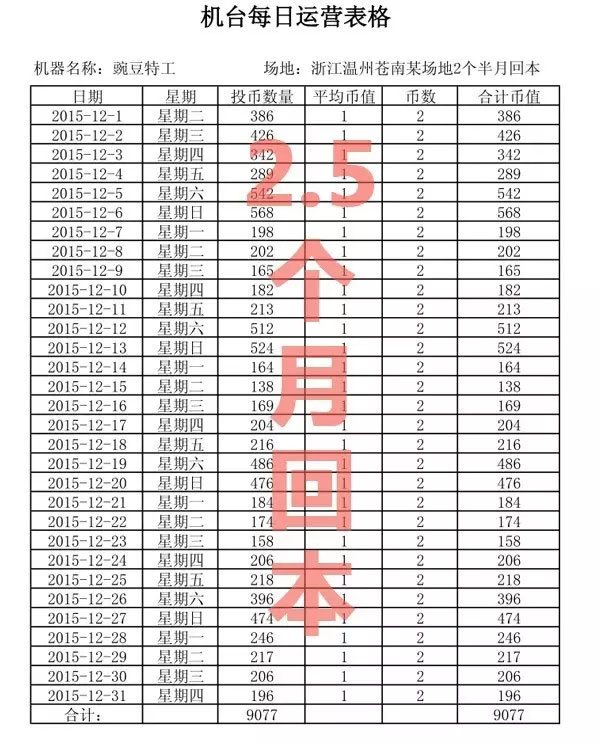 机台每日运营表格
机器名称：豌豆特工 场地：浙江温州苍南某场地2个半月回本
日期 星期 投币数量 平均币值 币数 合计币值
2015-12-1 星期二 386 1 2 386
2015-12-2 星期三 426 1 2 426
2015-12-3 星期四 342 1 2 342
2015-12-4 星期五 289 1 2 289
2015-12-5 星期六 542 1 2 542
2015-12-6 星期日 568 1 2 568
2015-12-7 星期一 198 1 2 198
2015-12-8 星期二 202 1 2 202
2015-12-9 星期三 165 1 2 165
2015-12-10 星期四 182 1 2 182
2015-12-11 星期五 213 1 2 213
2015-12-12 星期六 512 1 2 512
2015-12-13 星期日 524 1 2 524
2015-12-14 星期一 164 1 2 164
2015-12-15 星期二 138 1 2 138
2015-12-16 星期三 169 1 2 169
2015-12-17 星期四 204 1 2 204
2015-12-18 星期五 216 1 2 216
2015-12-19 星期六 486 1 2 486
2015-12-20 星期日 476 1 2 476
2015-12-21 星期一 184 1 2 184
2015-12-22 星期二 174 1 2 174
2015-12-23 星期三 158 1 2 158
2015-12-24 星期四 206 1 2 206
2015-12-25 星期五 218 1 2 218
2015-12-26 星期六 396 1 2 396
2015-12-27 星期日 474 1 2 474
2015-12-28 星期一 246 1 2 246
2015-12-29 星期二 217 1 2 217
2015-12-30 星期三 206 1 2 206
2015-12-31 星期四 196 1 2 196
合计： 9077 9077
2.5
个
月
回
本